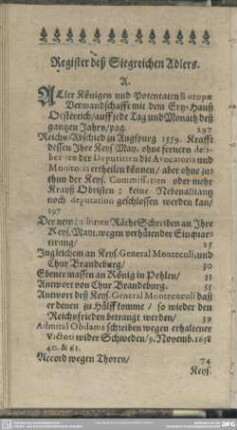 Register deß Siegreichen Adlers.
A.
Aller Königen und Potentaten Europæ
Verwandschafft mit dem Ertz-Hauß
Oesterreich / auff jede Tag und Monath deß
gantzen Jahrs / pag. 297
Reichs-Abschied zu Augspurg 1559. Krafft
dessen Ihre Keys. May. ohne fernern
der Deputirten die Avocatoria und
Monitoria ertheilen können / aber ohne zu-
thun der Keys. Commissarien oder mehr
Krayß Obristen; keine Nebenallianz
noch deputation geschlossen werden kan /
197
Räthe Schreiben an Ihre
Keys. May. wegen verhütender
25
Ingleichem an Keys. General Montecuculi und
Chur Brandeburg / 30
Ebener massen an König in Pohlen / 32
Antwort von Chur Brandeburg. 35
Antwort deß Keys. General Montecuculi daß
er denen zu Hülff komme / so wieder den
Reichsfrieden betrangt werden / 39
Admiral Obdams schreiben wegen erhaltener
Victori wider Schweden / 9. Novemb. 1658
40. & 61.
Accord wegen Thoren / 74
Keys.